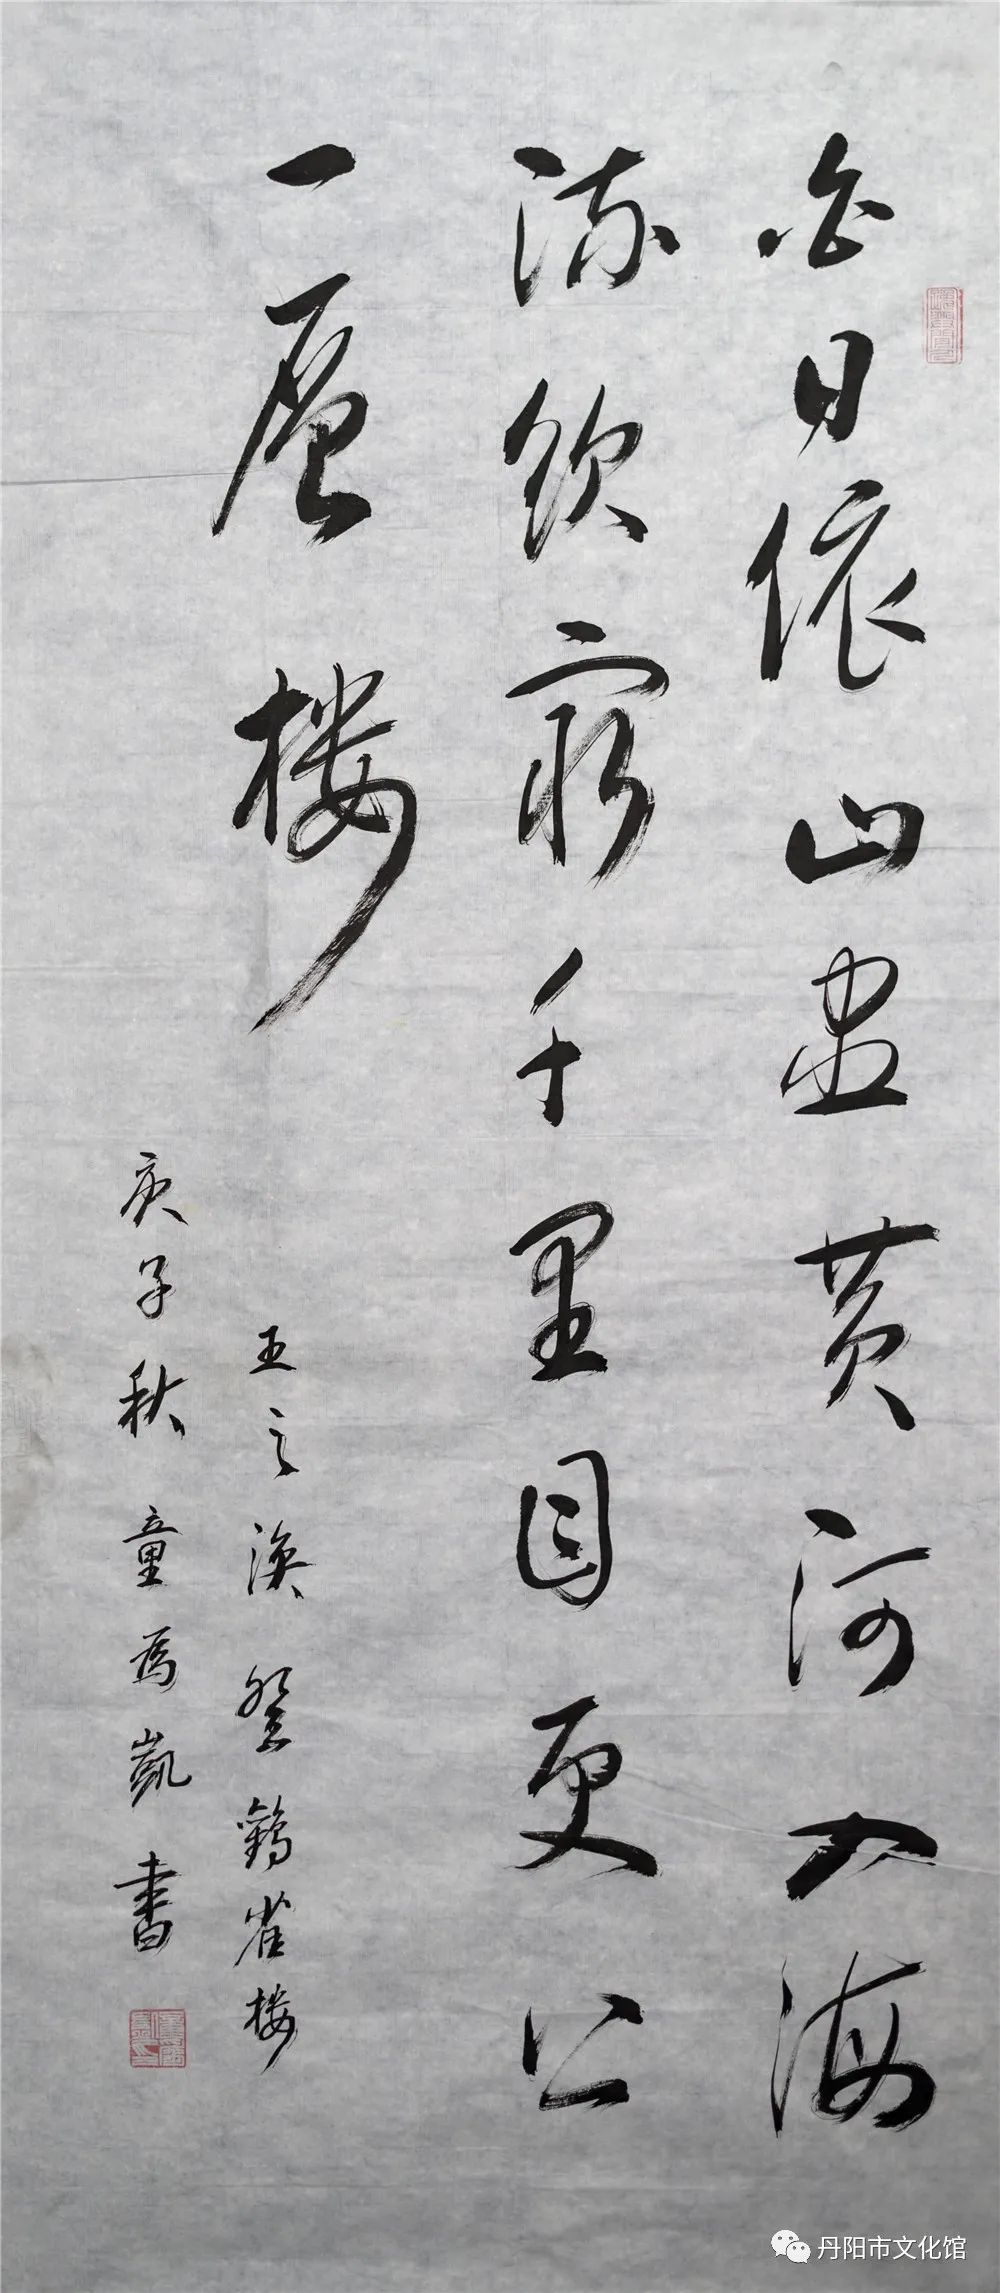 白日依山盡黄河入海
流欲窮千里目更上
一層楼
王之涣登鸛雀楼
庚子秋童為凱書
丹阳市文化馆